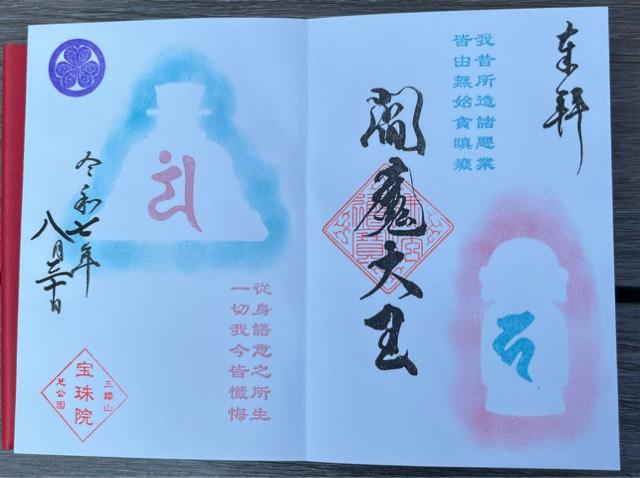 奉拝
我昔所造諸悪業
皆由無始貪瞋癡
閻魔大王
從身語意之所生
一切我今皆懺悔
令和七年
八月三十日
三縁山
宝珠院
芝公園